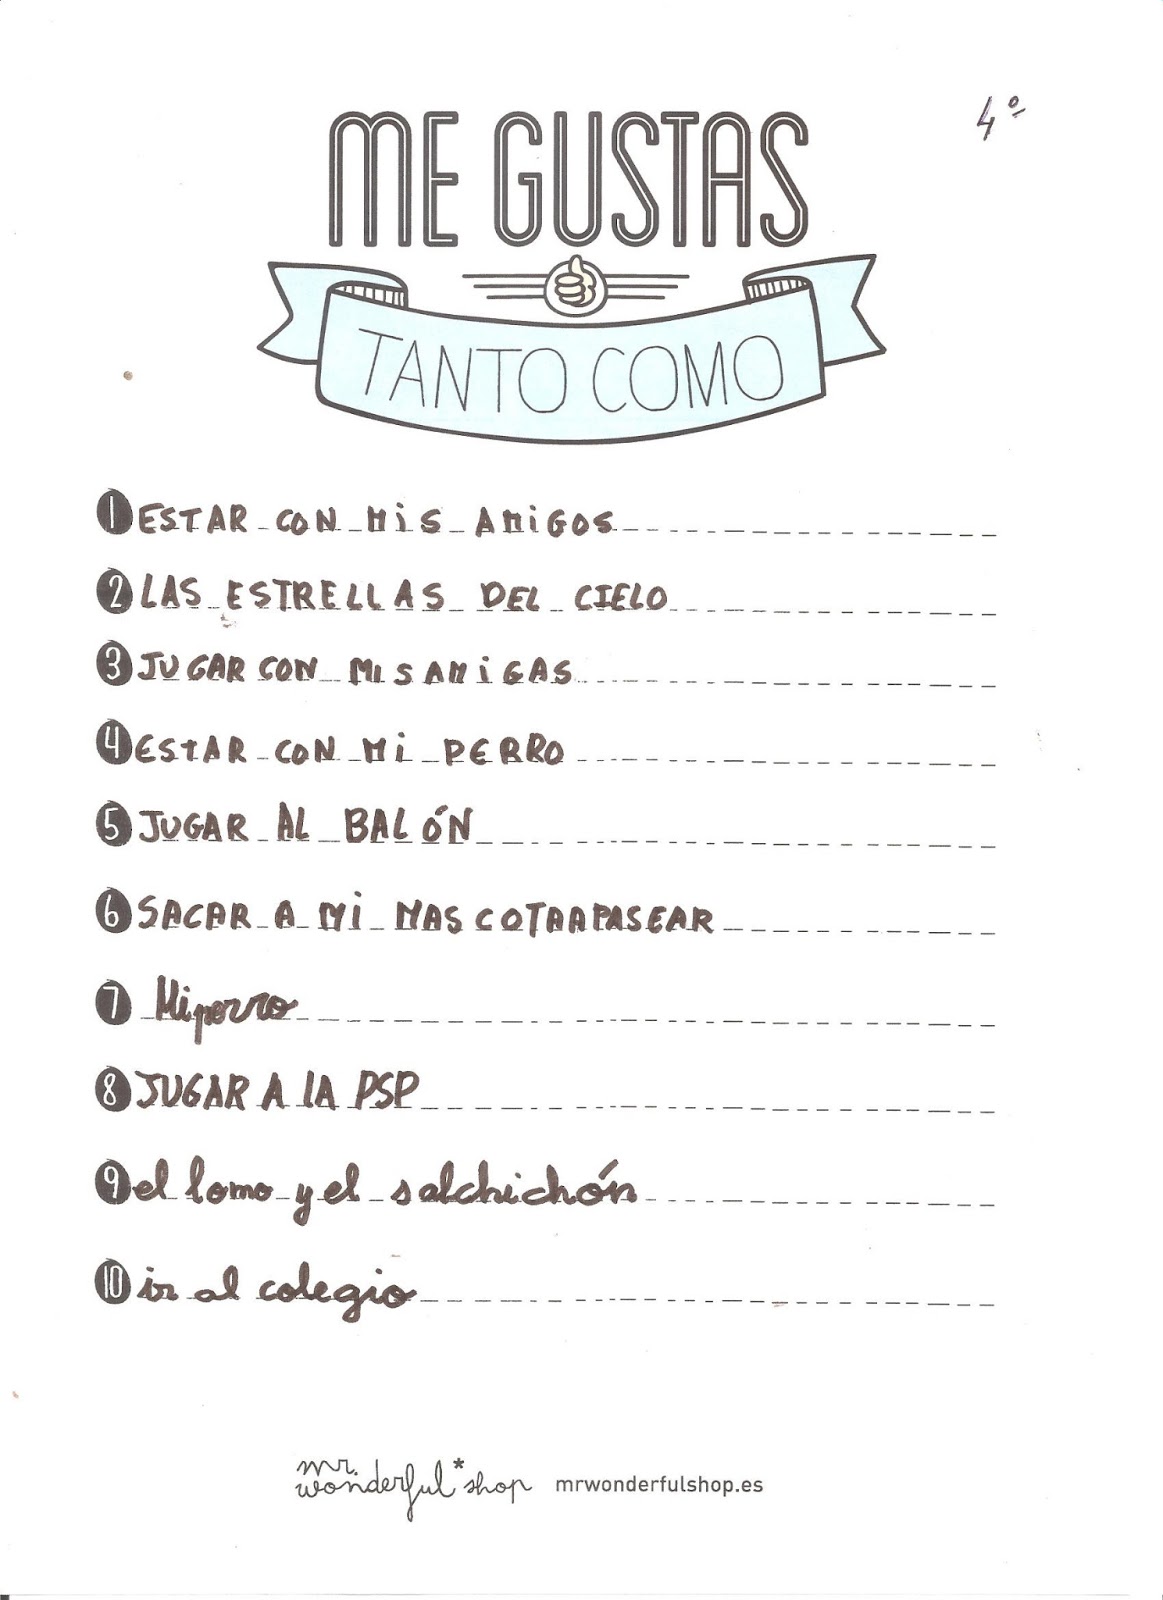 4º
ME GUSTAS
TANTO COMO
1 ESTAR CON MiS AMiGOS
2 LAS ESTRELLAS DEL CIELO
3 JUGAR CON MIS AMiGAS
4 ESTAR CON Mi PERRO
5 JUGAR AL BALÓN
6 SACAR A Mi MASCOTA A PASEAR
7 Mi perro
8 JUGAR A LA PSP
9 el lomo y el salchichón
10 ir al colegio
mr. wonderful* shop mrwonderfulshop.es